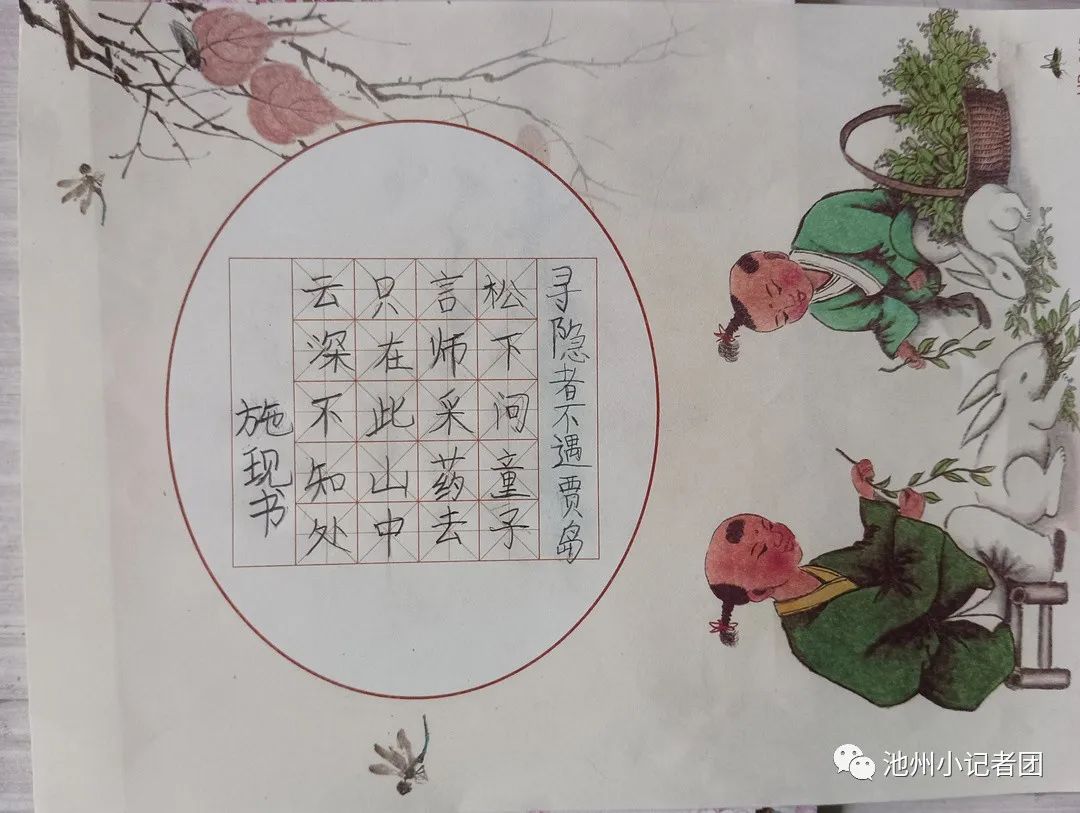 寻隐者不遇贾岛
松下问童子
言师采药去
只在此山中
云深不知处
施现书
池州小记者团